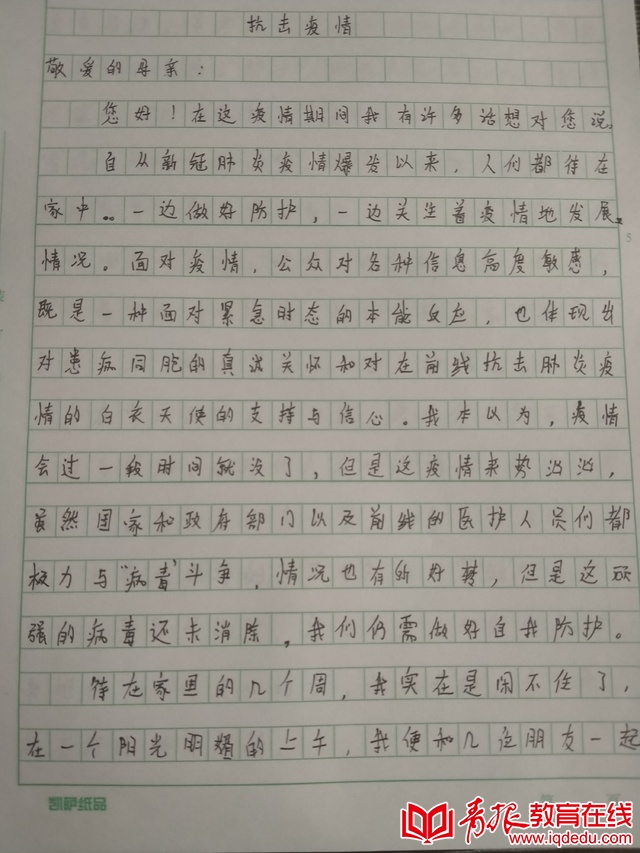 抗击疫情
敬爱的母亲：
您好！在这疫情期间我有许多话想对您说。
自从新冠肺炎疫情爆发以来，人们都待在
家中。一边做好防护，一边关注着疫情地发展
情况。面对疫情，公众对各种信息高度敏感，
既是一种面对紧急时态的本能反应，也体现出
对患病同胞的真诚关怀和对在前线抗击肺炎疫
情的白衣天使的支持与信心。我本以为，疫情
会过一段时间就没了，但是这疫情来势汹汹，
虽然国家和政府部门以及前线的医护人员们都
极力与“病毒”斗争，情况也有所好转，但是这顽
强的病毒还未消除，我们仍需做好自我防护。
待在家里的几个周，我实在是闲不住了，
在一个阳光明媚的上午，我便和几位朋友一起
凯萨纸品
青报教育在线
www.iqdedu.com